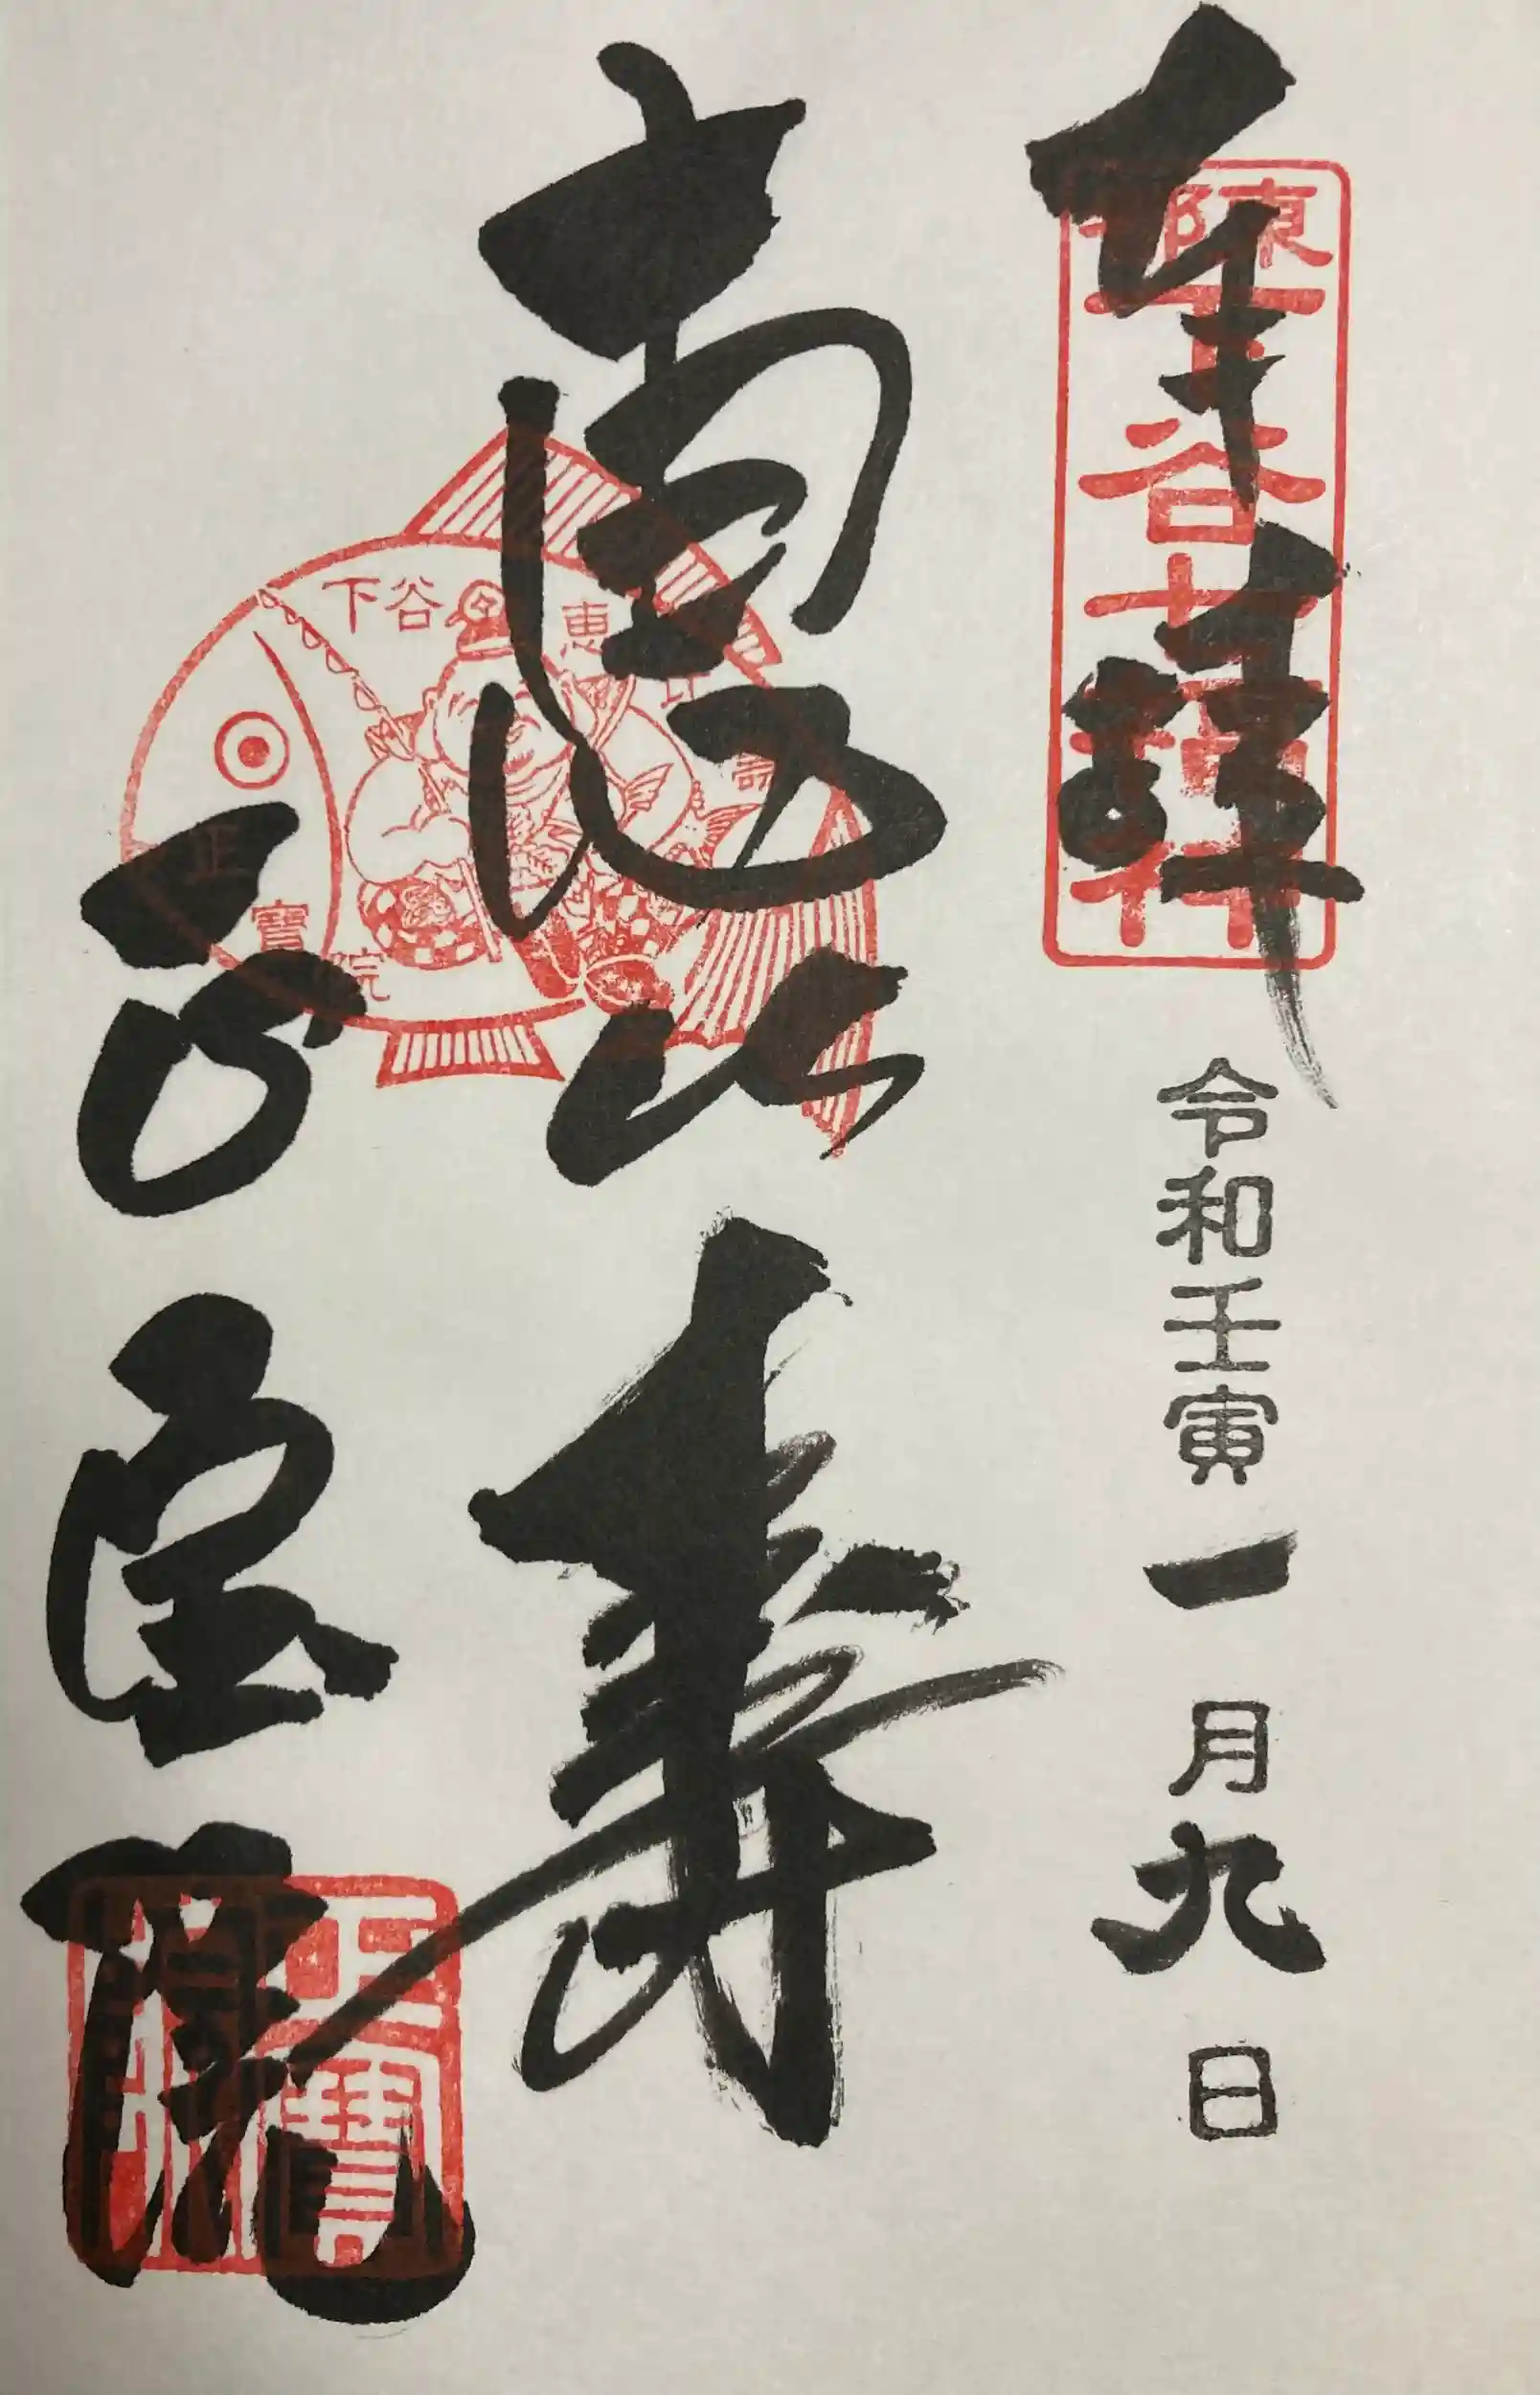 奉拝
東下谷七福神
令和壬寅一月九日
恵比寿
下谷 恵比寿
正寶院
正宝院
正寶院